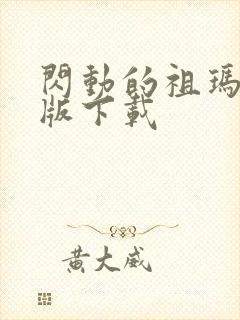 閃動的祖瑪
版下載
黃大威